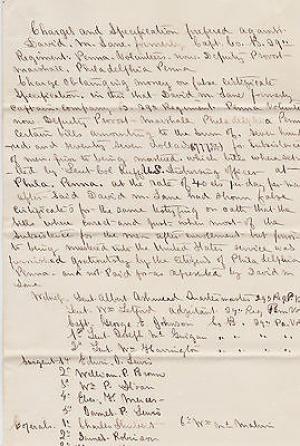 Charges and Specification prefered against
David. M. Lane formerly Capt. Co. B. 29th
Regiment. Penna. Volunteers. now. Deputy Provost
Marshall, Philadelphia Penna
Charge obtaining money on false Certificate
Specification. in this that David M. Lane formerly
Captain Company B. 29th Regiment Penna Volunteers
now Deputy Provost Marshall Philadelphia Penna
Certain bills amounting to the sum of. Seven hund
red and seventy seven dollars for subsistence
of men prior to being mustered, which bills where
ted by Lieut Col Ruff U.S. Disbursing officer at
Phila. Penna. at the rate of 40 cts pr day for
after Said David M. Lane had shown false
Certificates for the same certifying on oath that the
bills where correct and just which most of the
Subsistence for the men after but prior
to being mustered into the United States service was
furnished gratuitously by the Citizens of Philadelphia
Penna. and not Paid for as represented by David M
Lane
Witness Lieut. Albert Quartermaster 29 Reg P.V.
Lieut. Wm Letford adjutant 29th Reg Penn Vol
Capt. George E. Johnson Co B. 29th Pa. Vol
1st Lieut Joseph Mc Guigan " " " "
2nd Lieut Wm Harrington " " " "
Sargent 1st Edwin D. Lewis
2nd William P. Brown
3d Wm P. Sloan
4th Geo. Mercer
5th James P. Lewis
Corporals. 1st Charles 6th Wm Mc
2nd James Robinson